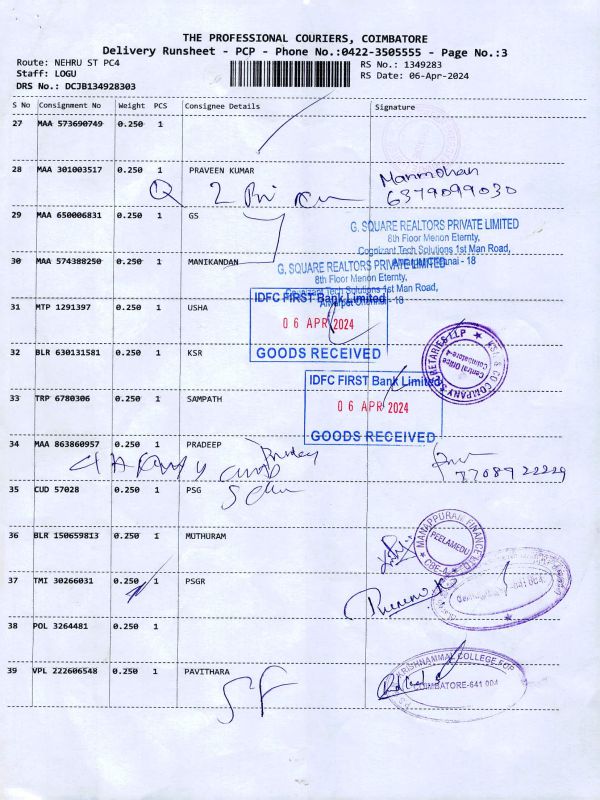 THE PROFESSIONAL COURIERS, COIMBATORE
Delivery Runsheet - PCP - Phone No.:0422-3505555 - Page No.:3
Route: NEHRU ST PC4
Staff: LOGU
DRS No.: DCJB134928303
RS No.: 1349283
RS Date: 06-Apr-2024
S No Consignment No Weight PCS Consignee Details Signature
27 MAA 573690749 0.250 1
28 MAA 301003517 0.250 1 PRAVEEN KUMAR
Manmohan
6379099030
29 MAA 650006831 0.250 1 GS
G. SQUARE REALTORS PRIVATE LIMITED
8th Floor Menon Eternty,
Cognizant Tech Solutions 1st Man Road,
30 MAA 574388250 0.250 1 MANIKANDAN
G. SQUARE REALTORS PRIVATE LIMITED
8th Floor Menon Eternty,
Cognizant Tech Solutions 1st Man Road,
31 MTP 1291397 0.250 1 USHA
IDFC FIRST Bank Limited
06 APR 2024
GOODS RECEIVED
32 BLR 630131581 0.250 1 KSR
KSR & CO COMPANY SECRETARIES LLP
Central Office
Coimbatore-4
IDFC FIRST Bank Limited
06 APR 2024
GOODS RECEIVED
33 TRP 6780306 0.250 1 SAMPATH
34 MAA 863860957 0.250 1 PRADEEP
7708922229
35 CUD 57028 0.250 1 PSG
36 BLR 150659813 0.250 1 MUTHURAM
MANAPPURAM FINANCE LTD
PEELAMEDU
CBE-4
37 TMI 30266031 0.250 1 PSGR
38 POL 3264481 0.250 1
39 VPL 222606548 0.250 1 PAVITHARA
KRISHNAMMAL COLLEGE FOR
COIMBATORE-641 004